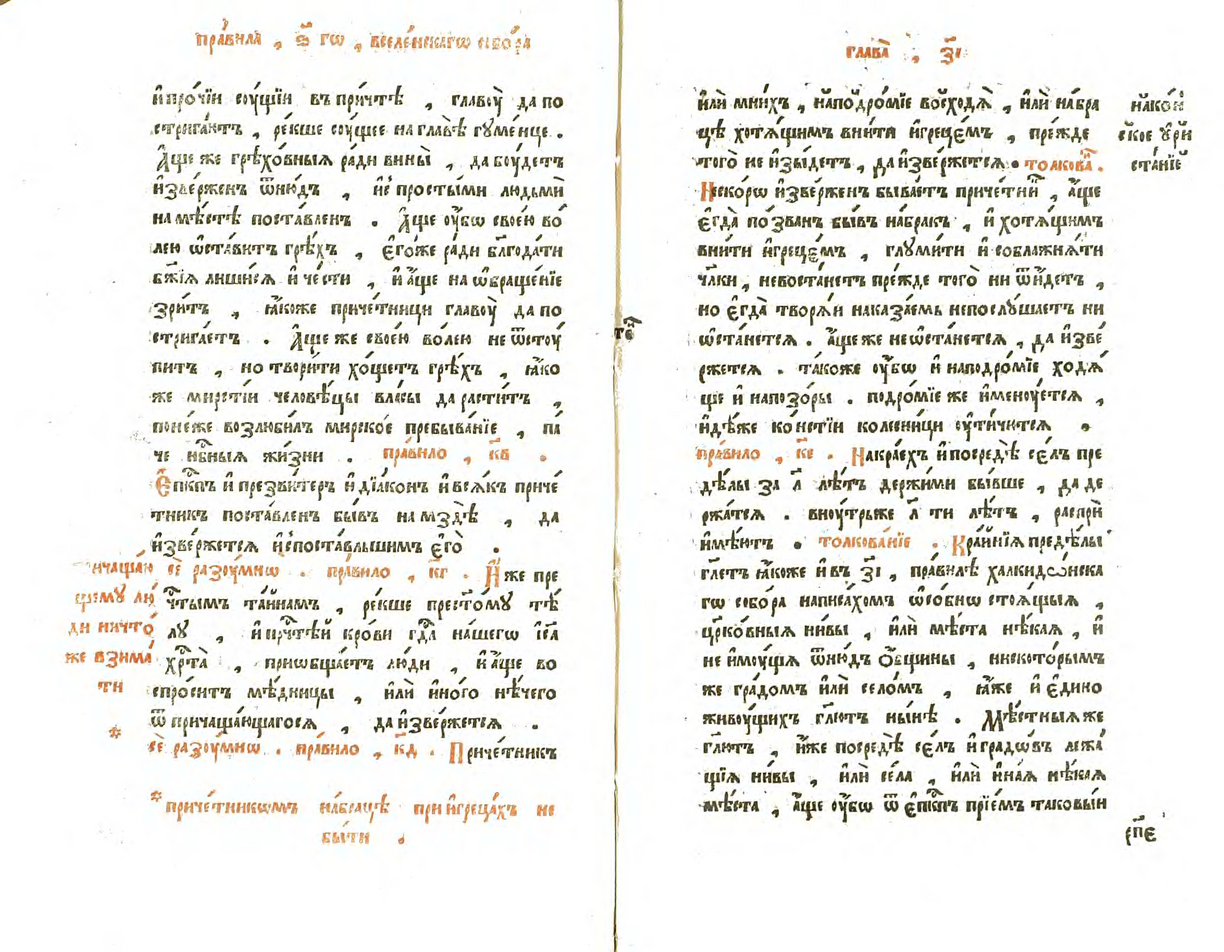 пра́вила , ѕ҃ гѡ , вселе́нскагѡ собо́ра
и҆про́чїи соу́щїи въ при́чтѣ , главоу̀ да по
стрига́ютъ , ре́кше соу́щее на главѣ̀ гꙋме́нце .
А҆́ще же грѣхо́вныѧ ради вины̀ , да боу́детъ
и҆зве́рженъ ѿню́дъ , и҆с̾ просты́ми людьмѝ
на мѣ́стѣ поста́вленъ . А҆́ще оу҆́бѡ свое́ю во́
лею ѡ҆ста́витъ грѣ́хъ , є҆го́же ра́ди бл҃года́ти
бж҃їѧ лиши́сѧ и҆ че́сти , и҆ а҆́ще на ѡ҆браще́нїе
зри́тъ , ꙗ҆́коже приче́тници главоу̀ да по
стрига́етъ . А҆́ще же свое́ю во́лею не ѿстоу́
питъ , но твори́ти хо́щетъ грѣ́хъ , ꙗ҆́ко
же ми́рстїи человѣ́цы вла́сы да расти́тъ ,
поне́же возлюби́лъ мирско́е пребыва́нїе , па́
че нб҃ныѧ жи́зни . пра́вило , к҃в .
Є҆пⷭ҇кпъ и҆ презви́теръ и҆ дїа́конъ и҆ всѧ́къ приче́
тникъ поста́вленъ бы́въ на мздѣ̀ , да
и҆зве́ржетсѧ и҆с̾поста́вльшимъ є҆го̀ .
сѐ разоу́мно . пра́вило , к҃г . И҆́же пре
чⷭ҇тымъ та́йнамъ , ре́кше прест҃о́мꙋ тѣ́
лꙋ , и҆ прчⷭ҇тѣй кро́ви гдⷭ҇а на́шегѡ і҆с҃а
хрⷭ҇та̀ , приѡбща́етъ лю́ди , и҆ а҆́ще во
спро́ситъ мѣ́дницы , и҆лѝ и҆но́го нѣ́чего
ѿ причаща́ющагосѧ , да и҆зве́ржетсѧ .
сѐ разоу́мно . пра́вило , к҃д . Приче́тникъ
причаща́ю
щемꙋ лю́
ди ничто́
же взима́
ти
*
*приче́тникѡмъ на́брацѣ при и҆греца́хъ не
бы́ти .
глава̀ , з҃і
и҆лѝ мни́хъ , на́подрꙋ́мїе восходѧ̀ , и҆лѝ на́бра
цѣ хотѧ́щимъ вни́ти и҆греце́мъ , пре́жде
того̀ не и҆зы́детъ , да и҆зве́ржетсѧ . толкова́ .
Не́скорѡ и҆зве́рженъ быва́етъ приче́тникъ , а҆́ще
є҆гда̀ по́званъ бы́въ на́бракъ , и҆ хотѧ́щимъ
вни́ти и҆греце́мъ , глꙋми́ти и҆ соблажнѧ́ти
чл҃ки , невоста́нетъ пре́жде того̀ ни ѿи́детъ ,
но є҆гда̀ творѧ́й наказа́емь непослꙋ́шаетъ ни
ѡ҆ста́нетсѧ . а҆́ще же не ѡ҆ста́нетсѧ , да и҆зве́
ржетсѧ . та́коже оу҆́бѡ и҆ на́подро́мїе ходѧ́
ще и҆ на́позо́ры . подро́мїе же и҆менꙋ́етсѧ ,
и҆дѣ́же ко́нстїи колесни́ци оу҆тича́тсѧ .
пра́вило , к҃е . На́краехъ и҆ посредѣ̀ се́лъ пре
дѣ́лы за л҃ лѣ́тъ держи́ми бы́вше , да де
ржа́тсѧ . вноу́трьже л҃ ти лѣ́тъ , ра́спри
и҆мѣ́ютъ . толкова́нїе . Кра́йнїѧ предѣ́лы
гл҃етъ ꙗ҆́коже и҆ въ з҃і , пра́вилѣ халкидо́нска
гѡ собо́ра написа́хомъ ѡ҆со́бнѡ стоѧ́щыѧ ,
цр҃ко́вныѧ ни́вы , и҆лѝ мѣ́ста нѣ́каѧ , и҆
не и҆мꙋ́щѧ ѿню́дъ ѻ҆́бщины , никото́рымъ
же гра́домъ и҆лѝ село́мъ , ꙗ҆́же и҆ є҆ди́но
живоу́щихъ гл҃ютъ ны́нѣ . Мѣ́стныѧ же
гл҃ютъ , и҆́же посредѣ̀ се́лъ и҆ градо́въ лежа́
щїѧ ни́вы , и҆лѝ се́ла , и҆лѝ и҆на́ѧ нѣ́каѧ
мѣ́ста , а҆́ще оу҆́бѡ ѿ є҆пⷭ҇кпъ прїе́мъ таковы́и
на́ко́н
ское ᲂу҆ри
ста́нїе
єп҃є